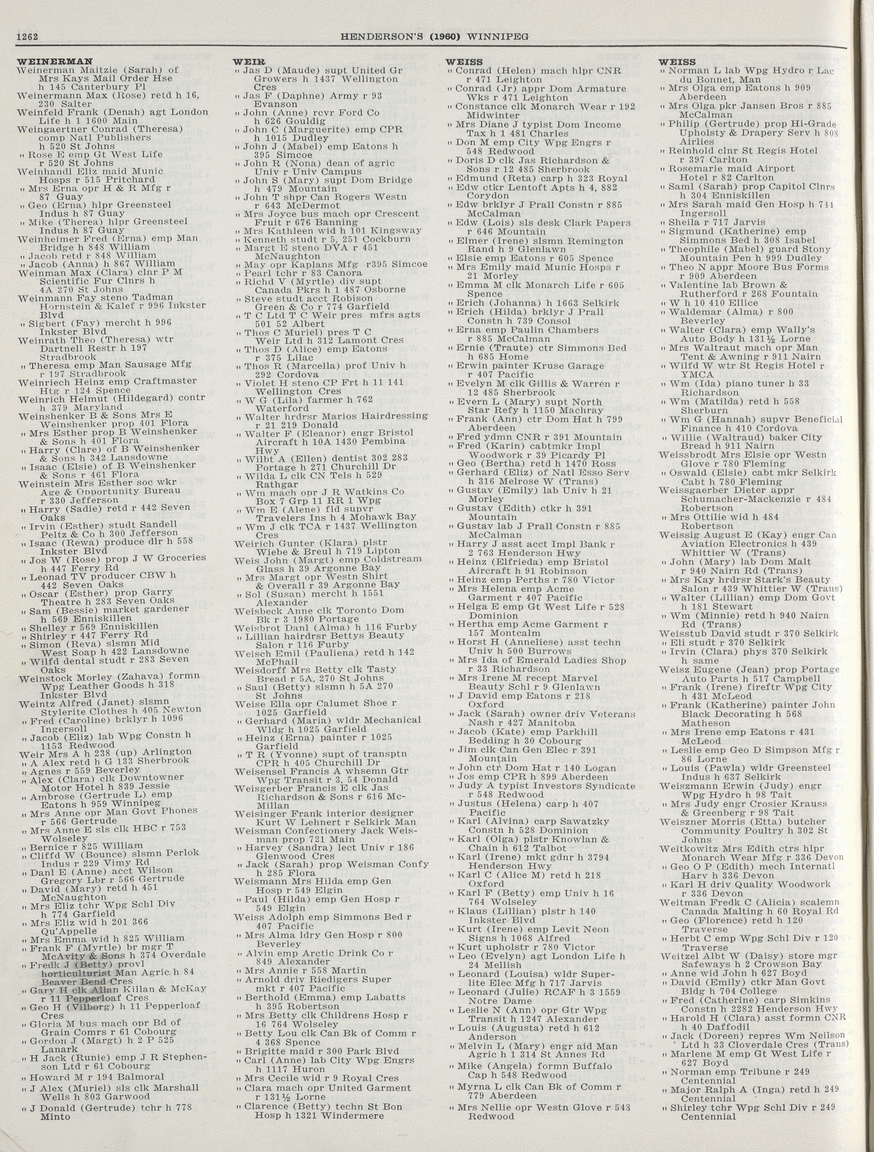 1262
HENDERSON'S (1960) WINNIPEG
WEINERMAN
Weinerman Maitzie (Sarah) of
Mrs Kays Mail Order Hse
h 145 Canterbury Pl
Weinermann Max (Rose) retd h 16,
230 Salter
Weinfeld Frank (Denah) agt London
Life h 1 1600 Main
Weingaertner Conrad (Theresa)
comp Natl Publishers
h 520 St Johns
" Rose E emp Gt West Life
r 520 St Johns
Weinhandl Eliz maid Munic
Hosps r 515 Pritchard
" Mrs Erna opr H & R Mfg r
87 Guay
" Geo (Erna) hlpr Greensteel
Indus h 87 Guay
" Mike (Theresa) hlpr Greensteel
Indus h 87 Guay
Weinheimer Fred (Erna) emp Man
Bridge h 848 William
" Jacob retd r 848 William
" Jacob (Anna) h 867 William
Weinman Max (Clara) clnr P M
Scientific Fur Clnrs h
4A 270 St Johns
Weinmann Fay steno Tadman
Hornstein & Kalef r 996 Inkster
Blvd
" Sigbert (Fay) mercht h 996
Inkster Blvd
Weinrath Theo (Theresa) wtr
Dartnell Restr h 197
Stradbrook
" Theresa emp Man Sausage Mfg
r 197 Stradbrook
Weinriech Heinz emp Craftmaster
Htg r 124 Spence
Weinrich Helmut (Hildegard) contr
h 379 Maryland
Weinshenker B & Sons Mrs E
Weinshenker prop 401 Flora
" Mrs Esther prop B Weinshenker
& Sons h 401 Flora
" Harry (Clare) of B Weinshenker
& Sons h 342 Lansdowne
" Isaac (Elsie) of B Weinshenker
& Sons r 461 Flora
Weinstein Mrs Esther soc wkr
Age & Opportunity Bureau
r 330 Jefferson
" Harry (Sadie) retd r 442 Seven
Oaks
" Irvin (Esther) studt Sandell
Peltz & Co h 300 Jefferson
" Isaac (Rewa) produce dlr h 558
Inkster Blvd
" Jos W (Rose) prop J W Groceries
h 447 Ferry Rd
" Leonad TV producer CBW h
442 Seven Oaks
" Oscar (Esther) prop Garry
Theatre h 283 Seven Oaks
" Sam (Bessie) market gardener
h 569 Enniskillen
" Shelley r 569 Enniskillen
" Shirley r 447 Ferry Rd
" Simon (Reva) slsmn Mid
West Soap h 422 Lansdowne
" Wilfd dental studt r 283 Seven
Oaks
Weinstock Morley (Zahava) formn
Wpg Leather Goods h 318
Inkster Blvd
Weintz Alfred (Janet) slsmn
Stylerite Clothes h 405 Newton
" Fred (Caroline) brklyr h 1096
Ingersoll
" Jacob (Eliz) lab Wpg Constn h
1153 Redwood
Weir Mrs A h 238 (up) Arlington
" A Alex retd h G 133 Sherbrook
" Agnes r 559 Beverley
" Alex (Clara) clk Downtowner
Motor Hotel h 839 Jessie
" Ambrose (Gertrude L) emp
Eatons h 959 Winnipeg
" Mrs Anne opr Man Govt Phones
r 566 Gertrude
" Mrs Anne E sls clk HBC r 753
Wolseley
" Bernice r 825 William
" Cliffd W (Bounce) slsmn Perlok
Indus r 229 Vimy Rd
" Danl E (Anne) acct Wilson
Gregory Lbr r 566 Gertrude
" David (Mary) retd h 451
McNaughton
" Mrs Eliz tchr Wpg Schl Div
h 774 Garfield
" Mrs Eliz wid h 201 366
Qu'Appelle
" Mrs Emma wid h 825 William
" Frank F (Myrtle) br mgr T
McAvity & Sons h 374 Overdale
" Fredk J (Betty) provl
horticulturist Man Agric h 84
Beaver Bend Cres
" Gary H clk Allan Killan & McKay
r 11 Pepperloaf Cres
" Geo H (Vilborg) h 11 Pepperloaf
Cres
" Gloria M bus mach opr Bd of
Grain Comrs r 61 Cobourg
" Gordon J (Margt) h 2 P 525
Lanark
" H Jack (Runie) emp J R Stephen-
son Ltd r 61 Cobourg
" Howard M r 194 Balmoral
J Alex (Muriel) sls clk Marshall
Wells h 803 Garwood
" J Donald (Gertrude) tchr h 778
Minto
WEIR
" Jas D (Maude) supt United Gr
Growers h 1437 Wellington
Cres
" Jas F (Daphne) Army r 93
Evanson
" John (Anne) rcvr Ford Co
h 626 Gouldig
" John C (Marguerite) emp CPR
h 1015 Dudley
" John J (Mabel) emp Eatons h
395 Simcoe
" John R (Nona) dean of agric
Univ r Univ Campus
" John S (Mary) supt Dom Bridge
h 479 Mountain
" John T shpr Can Rogers Westn
r 643 McDermot
" Mrs Joyce bus mach opr Crescent
Fruit r 676 Banning
" Mrs Kathleen wid h 101 Kingsway
" Kenneth studt r 5, 251 Cockburn
" Margt E steno DVA r 451
McNaughton
" May opr Kaplans Mfg r395 Simcoe
" Pearl tchr r 83 Canora
" Richd V (Myrtle) div supt
Canada Pkrs h 1 487 Osborne
" Steve studt acct Robison
Green & Co r 774 Garfield
" T C Ltd T C Weir pres mfrs agts
501 52 Albert
" Thos C Muriel) pres T C
Weir Ltd h 312 Lamont Cres
" Thos D (Alice) emp Eatons
r 375 Lilac
" Thos R (Marcella) prof Univ h
292 Cordova
" Violet H steno CP Frt h 11 141
Wellington Cres
" W G (Lila) farmer h 762
Waterford
" Walter hrdrsr Marios Hairdressing
r 21 219 Donald
" Walter F (Eleanor) engr Bristol
Aircraft h 10A 1430 Pembina
Hwy
" Wilbt A (Ellen) dentist 302 283
Portage h 271 Churchill Dr
" Wilda L clk CN Tels h 529
Rathgar
" Wm mach opr J R Watkins Co
Box 7 Grp 11 RR 1 Wpg
" Wm E (Alene) fld supvr
Travelers Ins h 4 Mohawk Bay
" Wm J clk TCA r 1437 Wellington
Cres
Weirich Gunter (Klara) plstr
Wiebe & Breul h 719 Lipton
Weis John (Margt) emp Coldstream
Glass h 39 Argonne Bay
" Mrs Margt opr Westn Shirt
& Overall r 39 Argonne Bay
" Sol (Susan) mercht h 1551
Alexander
Weisbeck Anne clk Toronto Dom
Bk r 3 1980 Portage
Weisbrot Danl (Alma) h 116 Furby
" Lillian hairdrsr Bettys Beauty
Salon r 116 Furby
Weisch Emil (Pauliena) retd h 142
McPhail
Weisdorff Mrs Betty clk Tasty
Bread r 5A, 270 St Johns
" Saul (Betty) slsmn h 5A 270
St Johns
Weise Ella opr Calumet Shoe r
1025 Garfield
" Gerhard (Maria) wldr Mechanical
Wldg h 1025 Garfield
" Heinz (Erna) painter r 1025
Garfield
" T R (Yvonne) supt of transptn
CPR h 405 Churchill Dr
Weisensel Francis A whsemn Gtr
Wpg Transit r 3, 54 Donald
Weisgerber Francis E clk Jas
Richardson & Sons r 616 Mc-
Millan
Weisinger Frank interior designer
Kurt W Lehnert r Selkirk Man
Weisman Confectionery Jack Weis-
man prop 721 Main
" Harvey (Sandra) lect Univ r 186
Glenwood Cres
" Jack (Sarah) prop Weisman Confy
h 285 Flora
Weismann Mrs Hilda emp Gen
Hosp r 549 Elgin
" Paul (Hilda) emp Gen Hosp r
549 Elgin
Weiss Adolph emp Simmons Bed r
407 Pacific
" Mrs Alma ldry Gen Hosp r 800
Beverley
" Alvin emp Arctic Drink Co r
849 Alexander
" Mrs Annie r 558 Martin
" Arnold driv Riedigers Super
mkt r 407 Pacific
" Berthold (Emma) emp Labatts
h 395 Robertson
" Mrs Betty clk Childrens Hosp r
16 764 Wolseley
" Betty Lou clk Can Bk of Comm r
4 368 Spence
" Brigitte maid r 300 Park Blvd
" Carl (Anne) lab City Wpg Engrs
h 1117 Huron
" Mrs Cecile wid r 9 Royal Cres
" Clara mach opr United Garment
r 131½ Lorne
" Clarence (Betty) techn St Bon
Hosp h 1321 Windermere
WEISS
" Conrad (Helen) mach hlpr CNR
r 471 Leighton
" Conrad (Jr) appr Dom Armature
Wks r 471 Leighton
" Constance clk Monarch Wear r 192
Midwinter
" Mrs Diane J typist Dom Income
Tax h 1 481 Charles
" Don M emp City Wpg Engrs r
548 Redwood
" Doris D clk Jas Richardson &
Sons r 12 485 Sherbrook
" Edmund (Reta) carp h 323 Royal
" Edw ctkr Lentoft Apts h 4, 882
Corydon
" Edw brklyr J Prall Constn r 885
McCalman
" Edw (Lois) sls desk Clark Papers
r 646 Mountain
" Elmer (Irene) slsmn Remington
Rand h 9 Glenlawn
" Elsie emp Eatons r 605 Spence
" Mrs Emily maid Munic Hosps r
21 Morley
" Emma M clk Monarch Life r 605
Spence
" Erich (Johanna) h 1663 Selkirk
" Erich (Hilda) brklyr J Prall
Constn h 739 Consol
" Erna emp Paulin Chambers
r 885 McCalman
" Ernie (Traute) ctr Simmons Bed
h 685 Home
" Erwin painter Kruse Garage
r 407 Pacific
" Evelyn M clk Gillis & Warren r
12 485 Sherbrook
" Evern L (Mary) supt North
Star Refy h 1150 Machray
" Frank (Ann) ctr Dom Hat h 799
Aberdeen
" Fred ydmn CNR r 391 Mountain
" Fred (Karin) cabtmkr Impl
Woodwork r 39 Picardy Pl
" Geo (Bertha) retd h 1470 Ross
" Gerhard (Eliz) of Natl Esso Serv
h 316 Melrose W (Trans)
" Gustav (Emily) lab Univ h 21
Morley
" Gustav (Edith) ctkr h 391
Mountain
" Gustav lab J Prall Constn r 885
McCalman
" Harry J asst acct Impl Bank r
2 763 Henderson Hwy
" Heinz (Elfrieda) emp Bristol
Aircraft h 91 Robinson
" Heinz emp Perths r 780 Victor
" Mrs Helena emp Acme
Garment r 407 Pacific
" Helga E emp Gt West Life r 528
Dominion
" Hertha emp Acme Garment r
157 Montcalm
" Horst H (Anneliese) asst techn
Univ h 500 Burrows
" Mrs Ida of Emerald Ladies Shop
r 33 Richardson
" Mrs Irene M recept Marvel
Beauty Schl r 9 Glenlawn
" J David emp Eatons r 218
Oxford
" Jack (Sarah) owner driv Veterans
Nash r 427 Manitoba
" Jacob (Kate) emp Parkhill
Bedding h 30 Cobourg
" Jim clk Can Gen Elec r 391
Mountain
" John ctr Dom Hat r 140 Logan
" Jos emp CPR h 899 Aberdeen
" Judy A typist Investors Syndicate
r 548 Redwood
" Justus (Helena) carp h 407
Pacific
" Karl (Alvina) carp Sawatzky
Constn h 528 Dominion
" Karl (Olga) plstr Knowlan &
Chain h 612 Talbot
" Karl (Irene) mkt gdnr h 3794
Henderson Hwy
" Karl C (Alice M) retd h 218
Oxford
" Karl F (Betty) emp Univ h 16
764 Wolseley
" Klaus (Lillian) plstr h 140
Inkster Blvd
" Kurt (Irene) emp Levit Neon
Signs h 1068 Alfred
" Kurt upholstr r 780 Victor
" Leo (Evelyn) agt London Life h
24 Mellish
" Leonard (Louisa) wldr Super-
lite Elec Mfg h 717 Jarvis
" Leonard (Julie) RCAF h 3 1559
Notre Dame
" Leslie N (Ann) opr Gtr Wpg
Transit h 1247 Alexander
" Louis (Augusta) retd h 612
Anderson
" Melvin L (Mary) engr aid Man
Agric h 1 314 St Annes Rd
" Mike (Angela) formn Buffalo
Cap h 548 Redwood
" Myrna L clk Can Bk of Comm r
779 Aberdeen
" Mrs Nellie opr Westn Glove r 543
Redwood
WEISS
" Norman L lab Wpg Hydro r Lac
du Bonnet, Man
" Mrs Olga emp Eatons h 909
Aberdeen
" Mrs Olga pkr Jansen Bros r 885
McCalman
" Philip (Gertrude) prop Hi-Grade
Upholsty & Drapery Serv h 808
Airlies
" Reinhold clnr St Regis Hotel
r 397 Carlton
" Rosemarie maid Airport
Hotel r 82 Carlton
" Saml (Sarah) prop Capitol Clnrs
h 304 Enniskillen
" Mrs Sarah maid Gen Hosp h 744
Ingersoll
" Sheila r 717 Jarvis
" Sigmund (Katherine) emp
Simmons Bed h 308 Isabel
" Theophile (Mabel) guard Stony
Mountain Pen h 999 Dudley
" Theo N appr Moore Bus Forms
r 909 Aberdeen
" Valentine lab Brown &
Rutherford r 268 Fountain
" W h 10 410 Ellice
" Waldemar (Alma) r 800
Beverley
" Walter (Clara) emp Wally's
Auto Body h 131½ Lorne
" Mrs Waltraut mach opr Man
Tent & Awning r 911 Nairn
" Wilfd W wtr St Regis Hotel r
YMCA
" Wm (Ida) piano tuner h 33
Richardson
" Wm (Matilda) retd h 558
Sherburn
" Wm G (Hannah) supvr Beneficial
Finance h 410 Cordova
" Willie (Waltraud) baker City
Bread h 911 Nairn
Weissbrodt Mrs Elsie opr Westn
Glove r 780 Fleming
" Oswald (Elsie) cabt mkr Selkirk
Cabt h 780 Fleming
Weissgaerber Dieter appr
Schumacher-Mackenzie r 484
Robertson
" Mrs Otilie wid h 484
Robertson
Weissig August E (Kay) engr Can
Aviation Electronics h 439
Whittier W (Trans)
" John (Mary) lab Dom Malt
r 940 Nairn Rd (Trans)
" Mrs Kay hrdrsr Stark's Beauty
Salon r 439 Whittier W (Trans)
" Walter (Lillian) emp Dom Govt
h 181 Stewart
" Wm (Minnie) retd h 940 Nairn
Rd (Trans)
Weisstub David studt r 370 Selkirk
" Eli studt r 370 Selkirk
" Irvin (Clara) phys 370 Selkirk
h same
Weisz Eugene (Jean) prop Portage
Auto Parts h 517 Campbell
" Frank (Irene) fireftr Wpg City
h 431 McLeod
" Frank (Katherine) painter John
Black Decorating h 568
Matheson
" Mrs Irene emp Eatons r 431
McLeod
" Leslie emp Geo D Simpson Mfg r
86 Lorne
" Louis (Pawla) wldr Greensteel
Indus h 637 Selkirk
Weiszmann Erwin (Judy) engr
Wpg Hydro h 98 Tait
" Mrs Judy engr Crosier Krauss
& Greenberg r 98 Tait
Weiszner Morris (Etta) butcher
Community Poultry h 302 St
Johns
Weitkowitz Mrs Edith ctrs hlpr
Monarch Wear Mfg r 336 Devon
" Geo O P (Edith) mech Internatl
Harv h 336 Devon
" Karl H driv Quality Woodwork
r 336 Devon
Weitman Fredk C (Alicia) scalemn
Canada Malting h 60 Royal Rd
" Geo (Florence) retd h 120
Traverse
" Herbt C emp Wpg Schl Div r 120
Traverse
Weitzel Albt W (Daisy) store mgr
Safeways h 2 Crowson Bay
" Anne wid John h 627 Boyd
" David (Emily) ctkr Man Govt
Bldg h 704 College
" Fred (Catherine) carp Simkins
Constn h 2282 Henderson Hwy
" Harold H (Clara) asst formn CNR
h 40 Daffodil
" Jack (Doreen) repres Wm Neilson
Ltd h 33 Cloverdale Cres (Trans)
" Marlene M emp Gt West Life r
627 Boyd
" Norman emp Tribune r 249
Centennial
" Major Ralph A (Inga) retd h 249
Centennial
" Shirley tchr Wpg Schl Div r 249
Centennial